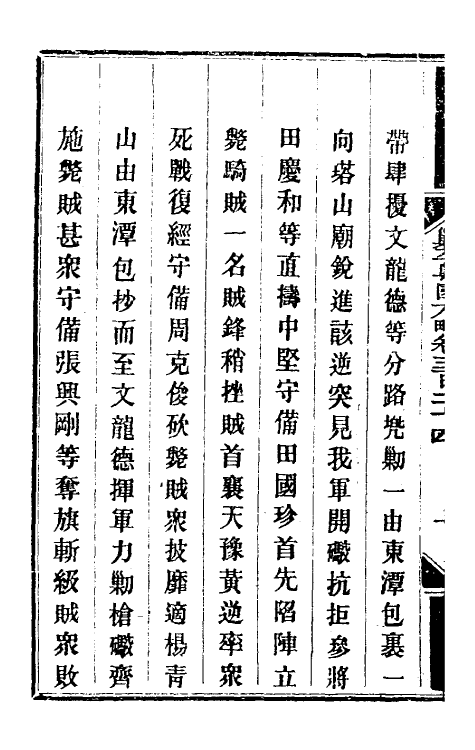 帶肆擾文龍德等分路兠勦一由東潭包裹一
向塔山廟銳進該逆突見我軍開礮抗拒參將
田慶和等直擣中堅守備田國珍首先陷陣立
斃騎賊一名賊鋒稍挫賊首襄天豫黃逆率衆
死戰復經守備周克俊砍斃賊衆披靡適楊青
山由東潭包抄而至文龍德揮軍力勦槍礮齊
施斃賊甚衆守備張興剛等奪旗斬級賊衆敗